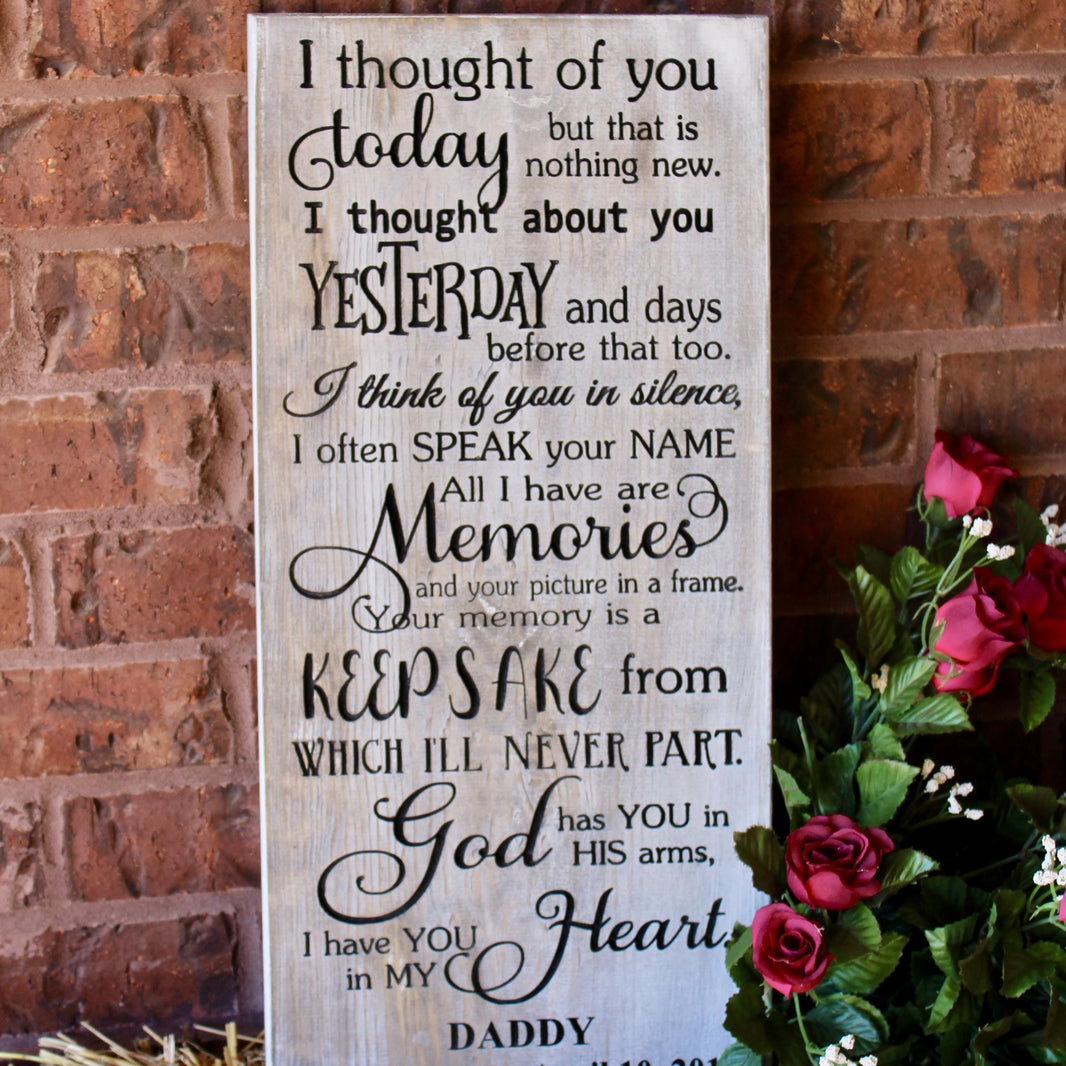 I thought of you
today but that is
nothing new.
I thought about you
YESTERDAY and days
before that too.
I think of you in silence,
I often SPEAK your NAME
All I have are
Memories
and your picture in a frame.
Your memory is a
KEEPSAKE from
WHICH I'LL NEVER PART.
God has YOU in
HIS arms,
I have YOU
in MY Heart.
DADDY